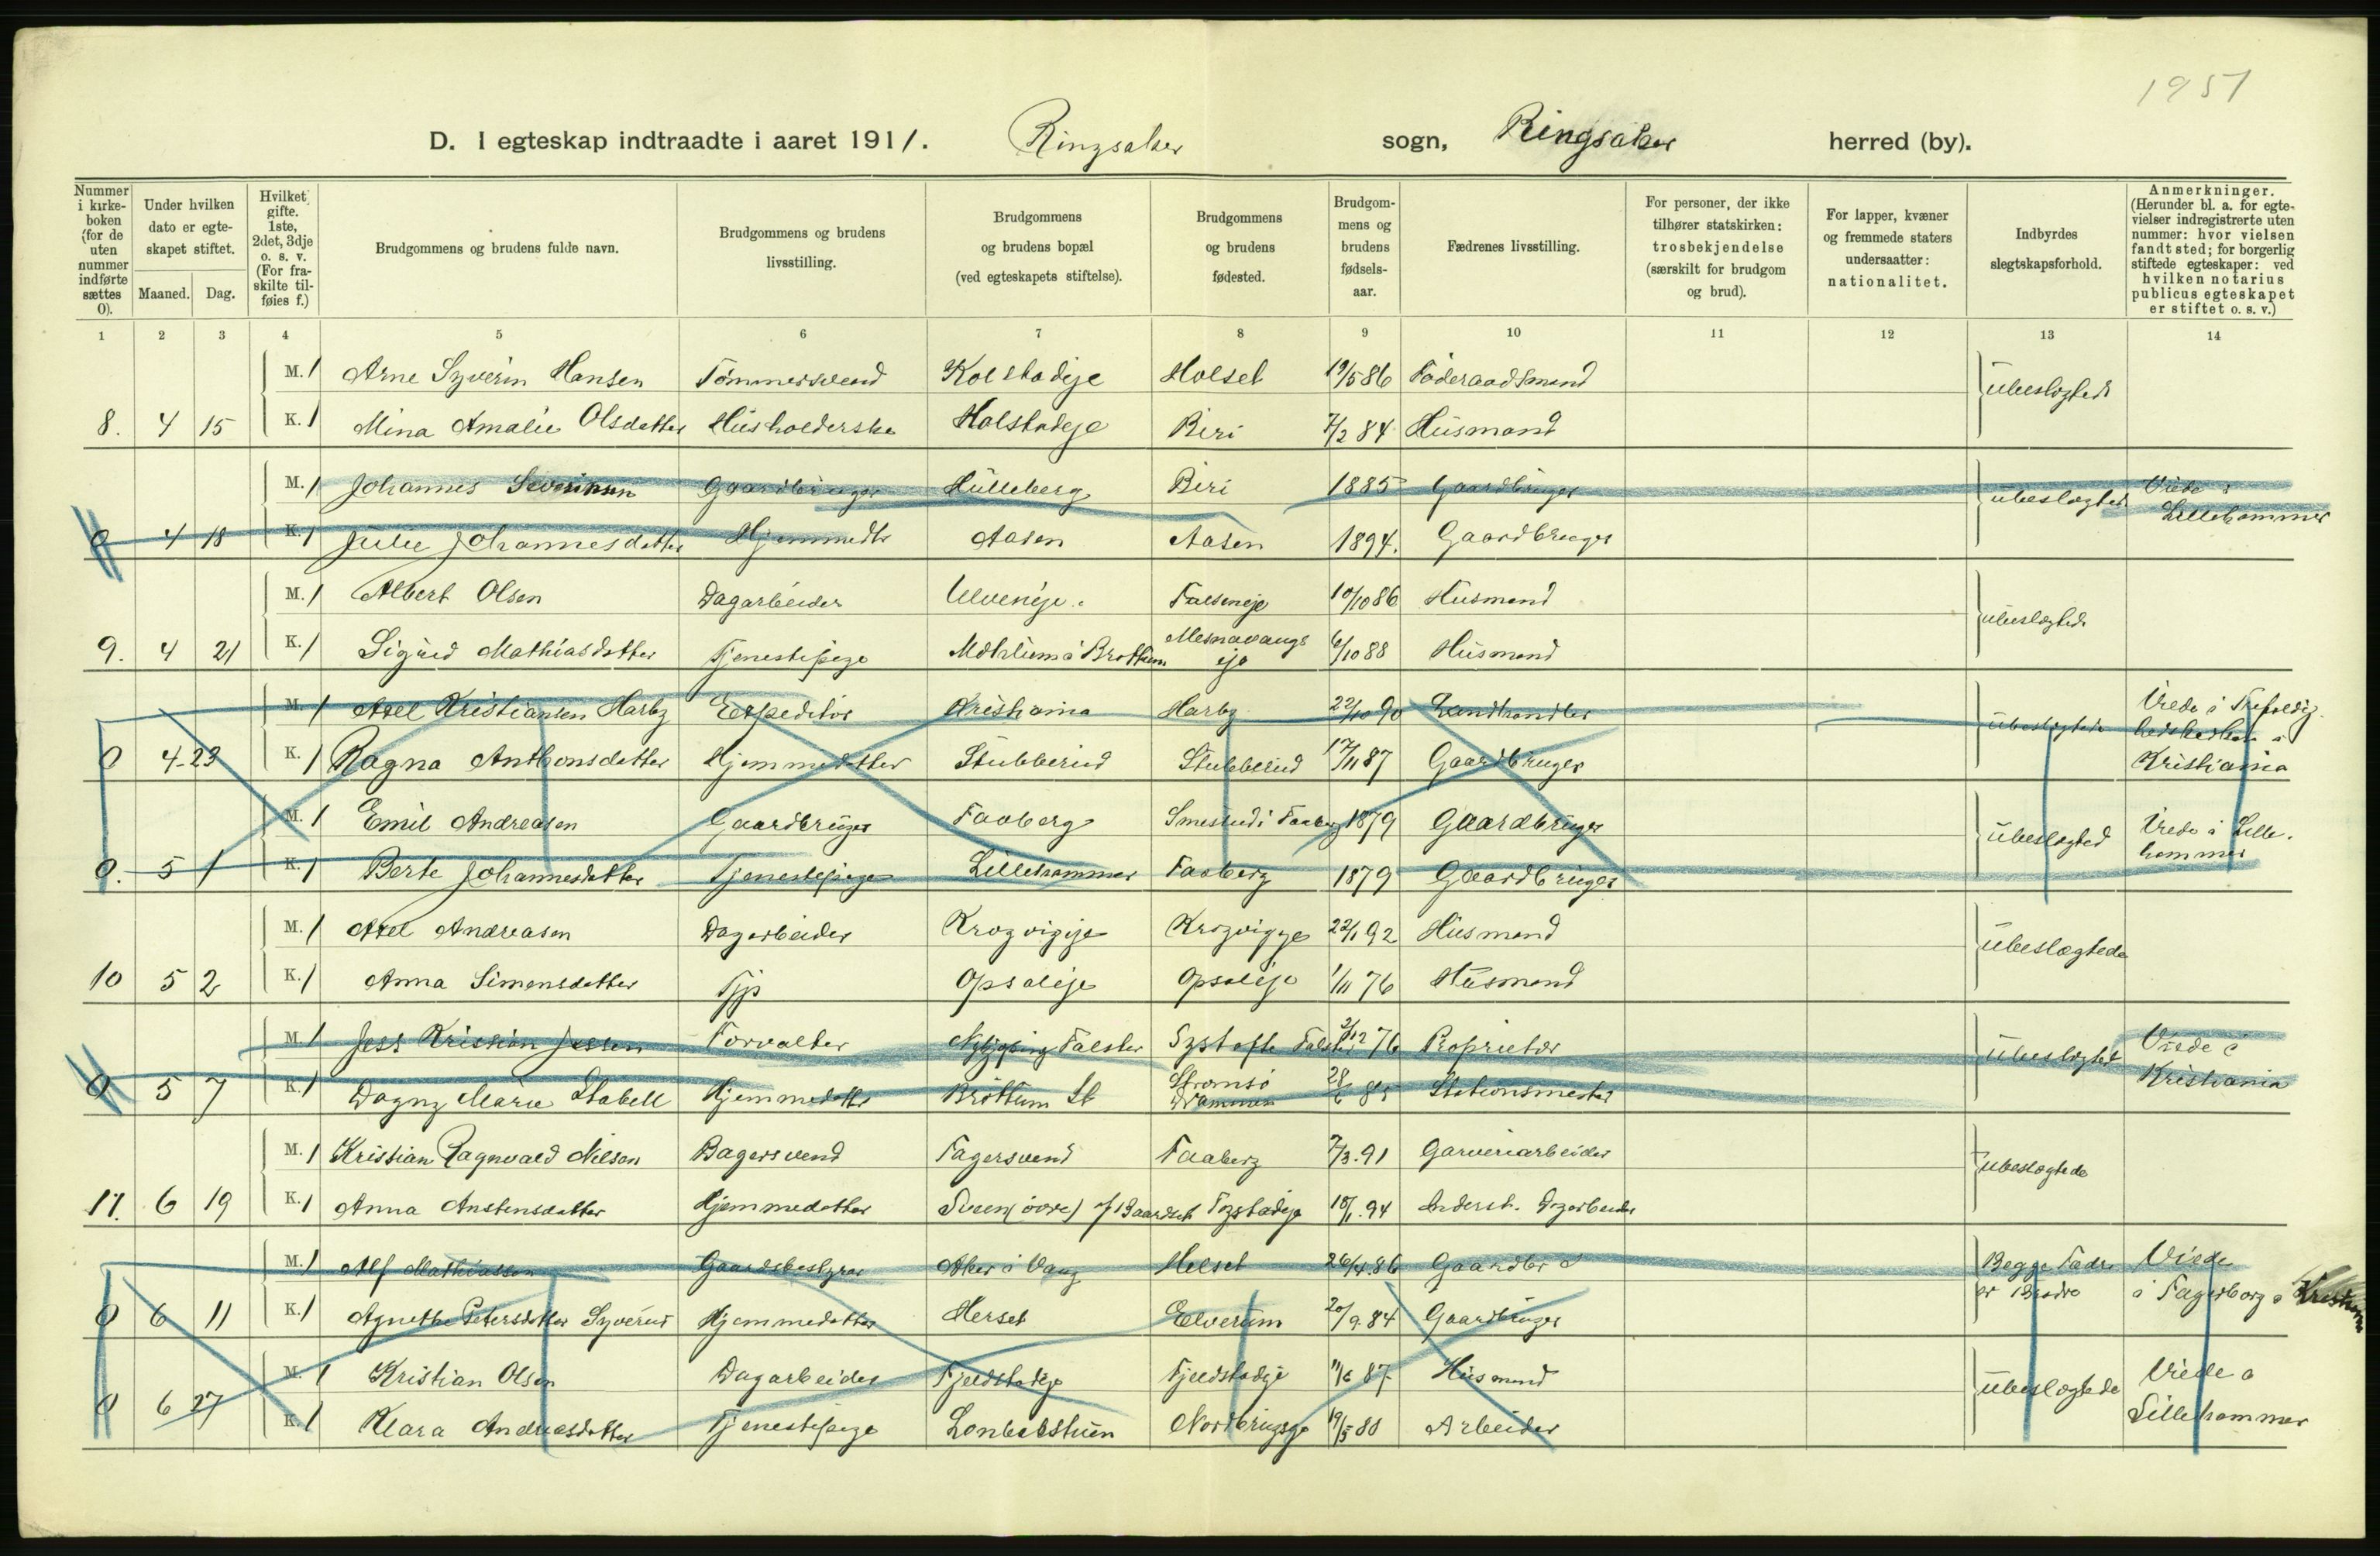 1951
D. I egteskap indtraadte i aaret 1911. Ringsaker sogn, Ringsaker herred (by).
Nummer i kirke-boken (for de uten nummer indførte sættes 0).
Under hvilken dato er egte-skapet stiftet.
Maaned. Dag.
Hvilket gifte. 1ste, 2det, 3dje o. s. v. (For fra-skilte til-føies f.)
Brudgommens og brudens fulde navn.
Brudgommens og brudens livsstilling.
Brudgommens og brudens bopæl (ved egteskapets stiftelse).
Brudgommens og brudens fødested.
Brudgom-mens og brudens fødsels-aar.
Fædrenes livsstilling.
For personer, der ikke tilhører statskirken: trosbekjendelse (særskilt for brudgom og brud).
For lapper, kvæner og fremmede staters undersaatter: nationalitet.
Indbyrdes slegtskapsforhold.
Anmerkninger. (Herunder bl. a. for egte-vielser indregistrerte uten nummer: hvor vielsen fandt sted; for borgerlig stiftede egteskaper: ved hvilken notarius publicus egteskapet er stiftet o. s. v.)
1 2 3 4 5 6 7 8 9 10 11 12 13 14
M. 1 Arne Syverin Hansen Tömmersvend Kolstadeje Holset 19/5 86 Föderaadsmand ubeslegtede
8. 4 15 K. 1 Mina Amalie Olsdatter Husholderske Holstadeje Biri 7/2 84 Husmand
M. 1 Johannes Severinsen Gaardbruger Hulleberg Biri 1885 Gaardbruger ubeslægtet Viede i Lillehammer
0 4 18 K. 1 Julie Johannesdatter Hjemmedtr Aasen Aasen 1894. Gaardbruger
M. 1 Albert Olsen Dagarbeider Ulveneje. Falseneje 10/10 86 Husmand ubeslægtede
9. 4 21 K. 1 Sigrid Mathiasdatter Tjenestepige Brøttum Mesnavangs eje 6/10 88 Husmand
M. 1 Axel Kristiansen Harby Expeditör Kristiania Harby 22/10 90 Landhandler ubeslegtede Viede i Trefoldighedskirken i Kristiania
0 4-23 K. 1 Ragna Anthonsdatter Hjemmedatter Stubberud Stubberud 17/11 87 Gaardbruger
M. 1 Emil Andreasen Gaardbruger Faaberg Smestad i Faaberg 1879 Gaardbruger ubeslegted Viede i Lillehammer
0. 5 1 K. 1 Berte Johannesdatter Tjenestepige Lillehammer Faaberg 1879 Gaardbruger
M. 1 Axel Andreasen Dagarbeider Krogvigeje Krogvigeje 22/1 92 Husmand ubeslegtede
10 5 2 K. 1 Anna Simensdatter Tjp Opsaleje Opsaleje 1/11 76 Husmand
M. 1 Jess Kristian Jessen Forvalter Nykjøping Falster Systofte Falster 2/12 76 Proprietær ubeslegtet Viede i Kristiania
0 5 7 K. 1 Dagny Marie Stabell Hjemmedatter Brøttum St Strømsö Drammen 28/6 85 Stationsmester
M. 1 Kristian Ragnvald Nilsen Bagersvend Fagersvend Faaberg 7/3. 91 Garveriarbeider ubeslegtede
11. 6 19 K. 1 Anna Anstensdatter Hjemmedatter Sveen (övre) af Baardset Fystadeje 18/1. 94 Dagarbeider
M. 1 Alf Mathiassen Gaardsbestyrer Aker i Vang Helset 26/4. 86 Gaardbr Begge Fædre er Brødre Viede i Fagerborg
0 6 11 K. 1 Agnethe Petersdatter Syverud Hjemmedatter Herset Elverum 20/9. 84 Gaardbruger
M. 1 Kristian Olsen Dagarbeider Fjeldstadeje Fjeldstadeje 11/6 87 Husmand ubeslegtede Viede i Lillehammer
0 6 27 K. 1 Klara Andreasdatter Tjenestepige 19/5 80 Arbeider